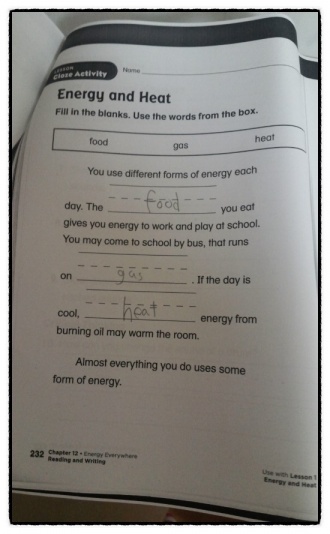 LESSON
Class Activity
Name
Energy and Heat
Fill in the blanks. Use the words from the box.
food gas heat
You use different forms of energy each
day. The food you eat
gives you energy to work and play at school.
You may come to school by bus, that runs
on gas . If the day is
cool, heat energy from
burning oil may warm the room.
Almost everything you do uses some
form of energy.
232 Chapter 12 • Energy Everywhere
Reading and Writing
Use with Lesson 1
Energy and Heat